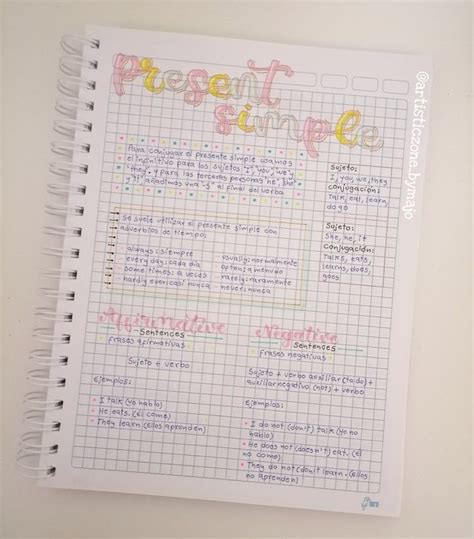 present
simple
@artisticzone_bymajo
Para conjugar el presente simple usamos
el infinitivo para los sujetos I, you, we y
they y para las terceras personas he, she
y it añadimos una -s al final del verbo
Sujeto:
I, you, we, they
conjugación:
Talk, eat, learn,
do go
Sujeto:
She, he, it
Conjugación:
Talks, eats,
learns, does,
goes
Se suele utilizar el presente simple con
adverbios de tiempo;
always: siempre
every day: cada día
Sometimes: a veces
hardly ever: casi nunca
usually: normalmente
often: a menudo
rately: raramente
never: nunca
Affirmative
Sentences
frases afirmativas
Sujeto + verbo
Ejemplos:
I talk (Yo hablo)
He eats. (Él come)
They learn (Ellos aprenden)
Negative
Sentences
frases negativas
Sujeto + verbo auxiliar (to do) +
auxiliar negativo (not) + verbo
Ejemplos:
I do not (don't) talk (Yo no
hablo)
He does not (doesn't) eat. (Él
no come)
They do not (don't) learn. (Ellos
no aprenden)